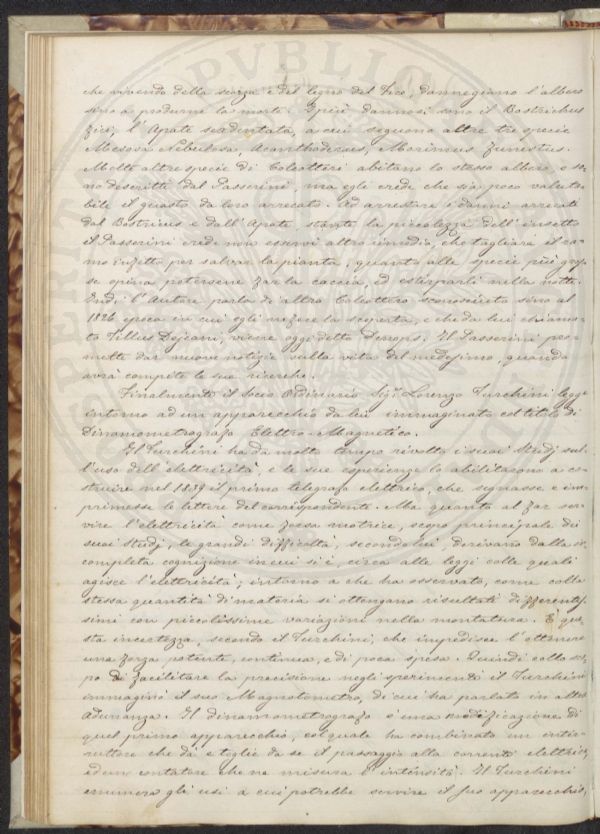 che vivendo della scorza e del legno del Fico, danneggiano l'albero
sino a produrne la morte. I più dannosi sono il Bostrichus
Fici, l'Apate sexdentata, a cui seguono altre tre specie
Mesosa Nebulosa, Acanthoderus, Morimus Funestus.
Molte altre specie di Coleotteri abitano lo stesso albero e so-
no descritti dal Passerini, ma egli crede che sia poco valuta-
bile il guasto da loro arrecato. Ad arrestare i danni arrecati
dal Bostricus e dall'Apate, stante la piccolezza dell'insetto
il Passerini crede non esservi altro rimedio, che tagliare il ra-
mo infetto per salvar la pianta, quanto alle specie più gros-
se opina potersene far la caccia, ed estirparli nella notte.
Indi l'Autore parla di altro Coleottero sconosciuto sino al
1826 epoca in cui egli ne fece la scoperta, e che da lui chiama-
to Tillus Dejeani, viene oggi detto Denops. Il Passerini pro-
mette dar nuove notizie sulla vita del medesimo, quando
avrà compite le sue ricerche.
Finalmente il Socio Ordinario Sig.r Lorenzo Turchini legge
intorno ad un apparecchio da lui immaginato col titolo di
Dinamometrografo Elettro-Magnetico.
Il Turchini ha da molto tempo rivolto i suoi Studj sul-
l'uso dell'elettricità, e le sue esperienze lo abilitarono a co-
struire nel 1839 il primo telegrafo elettrico, che segnasse e im-
primesse le lettere del corrispondente. Ma quanto al far ser-
vire l'elettricità come forza motrice, scopo principale dei
suoi Studj, le grandi difficoltà, secondo lui, derivano dalla in-
completa cognizione in cui si è, circa alle leggi colle quali
agisce l'elettricità; intorno a che ha osservato, come colla
stessa quantità di materia si ottengano risultati differentis-
simi con piccolissime variazioni nella montatura. È que-
sta incertezza, secondo il Turchini, che impedisce l'ottenere
una forza potente, continua, e di poca spesa. Quindi collo sco-
po di facilitare la precisione negli sperimenti il Turchini
immaginò il suo Magnetometro, di cui ha parlato in altra
Adunanza. Il dinamometrografo è una modificazione di
quel primo apparecchio, col quale ha combinato un inter-
ruttore che dà e toglie da se il passaggio alla corrente elettrica,
ed un contatore che ne misura l'intensità. Il Turchini
enumera gli usi a cui potrebbe servire il suo apparecchio,